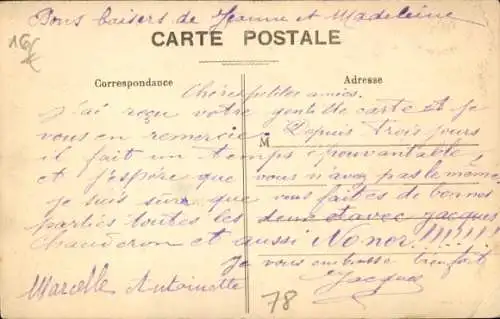 Bons baisers de Jeanne et Madeleine
16€
CARTE POSTALE
Correspondance
Adresse
Chères petites amies.
J'ai reçu votre gentille carte et je
vous en remercie. Depuis trois jours
M
il fait un temps épouvantable,
et j'espère que vous n'avez pas le même
je suis sûre que vous faites de bonnes
parties toutes les deux et avec Jacques
Chauderon et aussi Nonor!!!!!!!
Je vous embrasse bien fort
Marcelle Antoinette
Jacques
78